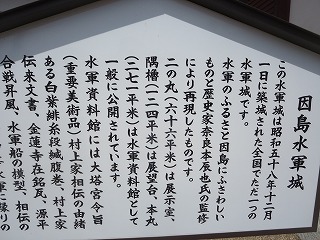 因島水軍城
この水軍城は昭和五十八年十一月
一日に築城された全国でただ一つの
水軍城です。
水軍のふるさと因島にふさわしい
ものと歴史家奈良本辰也氏の監修
により再現したものです。
二の丸(六十六平米)は展示室、
隅櫓(二四平米)は展望台、本丸
(二七一平米)は水軍資料館として
一般に公開されています。
水軍資料館には大塔宮令旨
(重要美術品)村上家相伝の由緒
ある白紫緋糸段縅腹巻、村上家
伝来文書、金蓮寺在銘瓦、源平
合戦屏風、水軍船の模型、相伝の